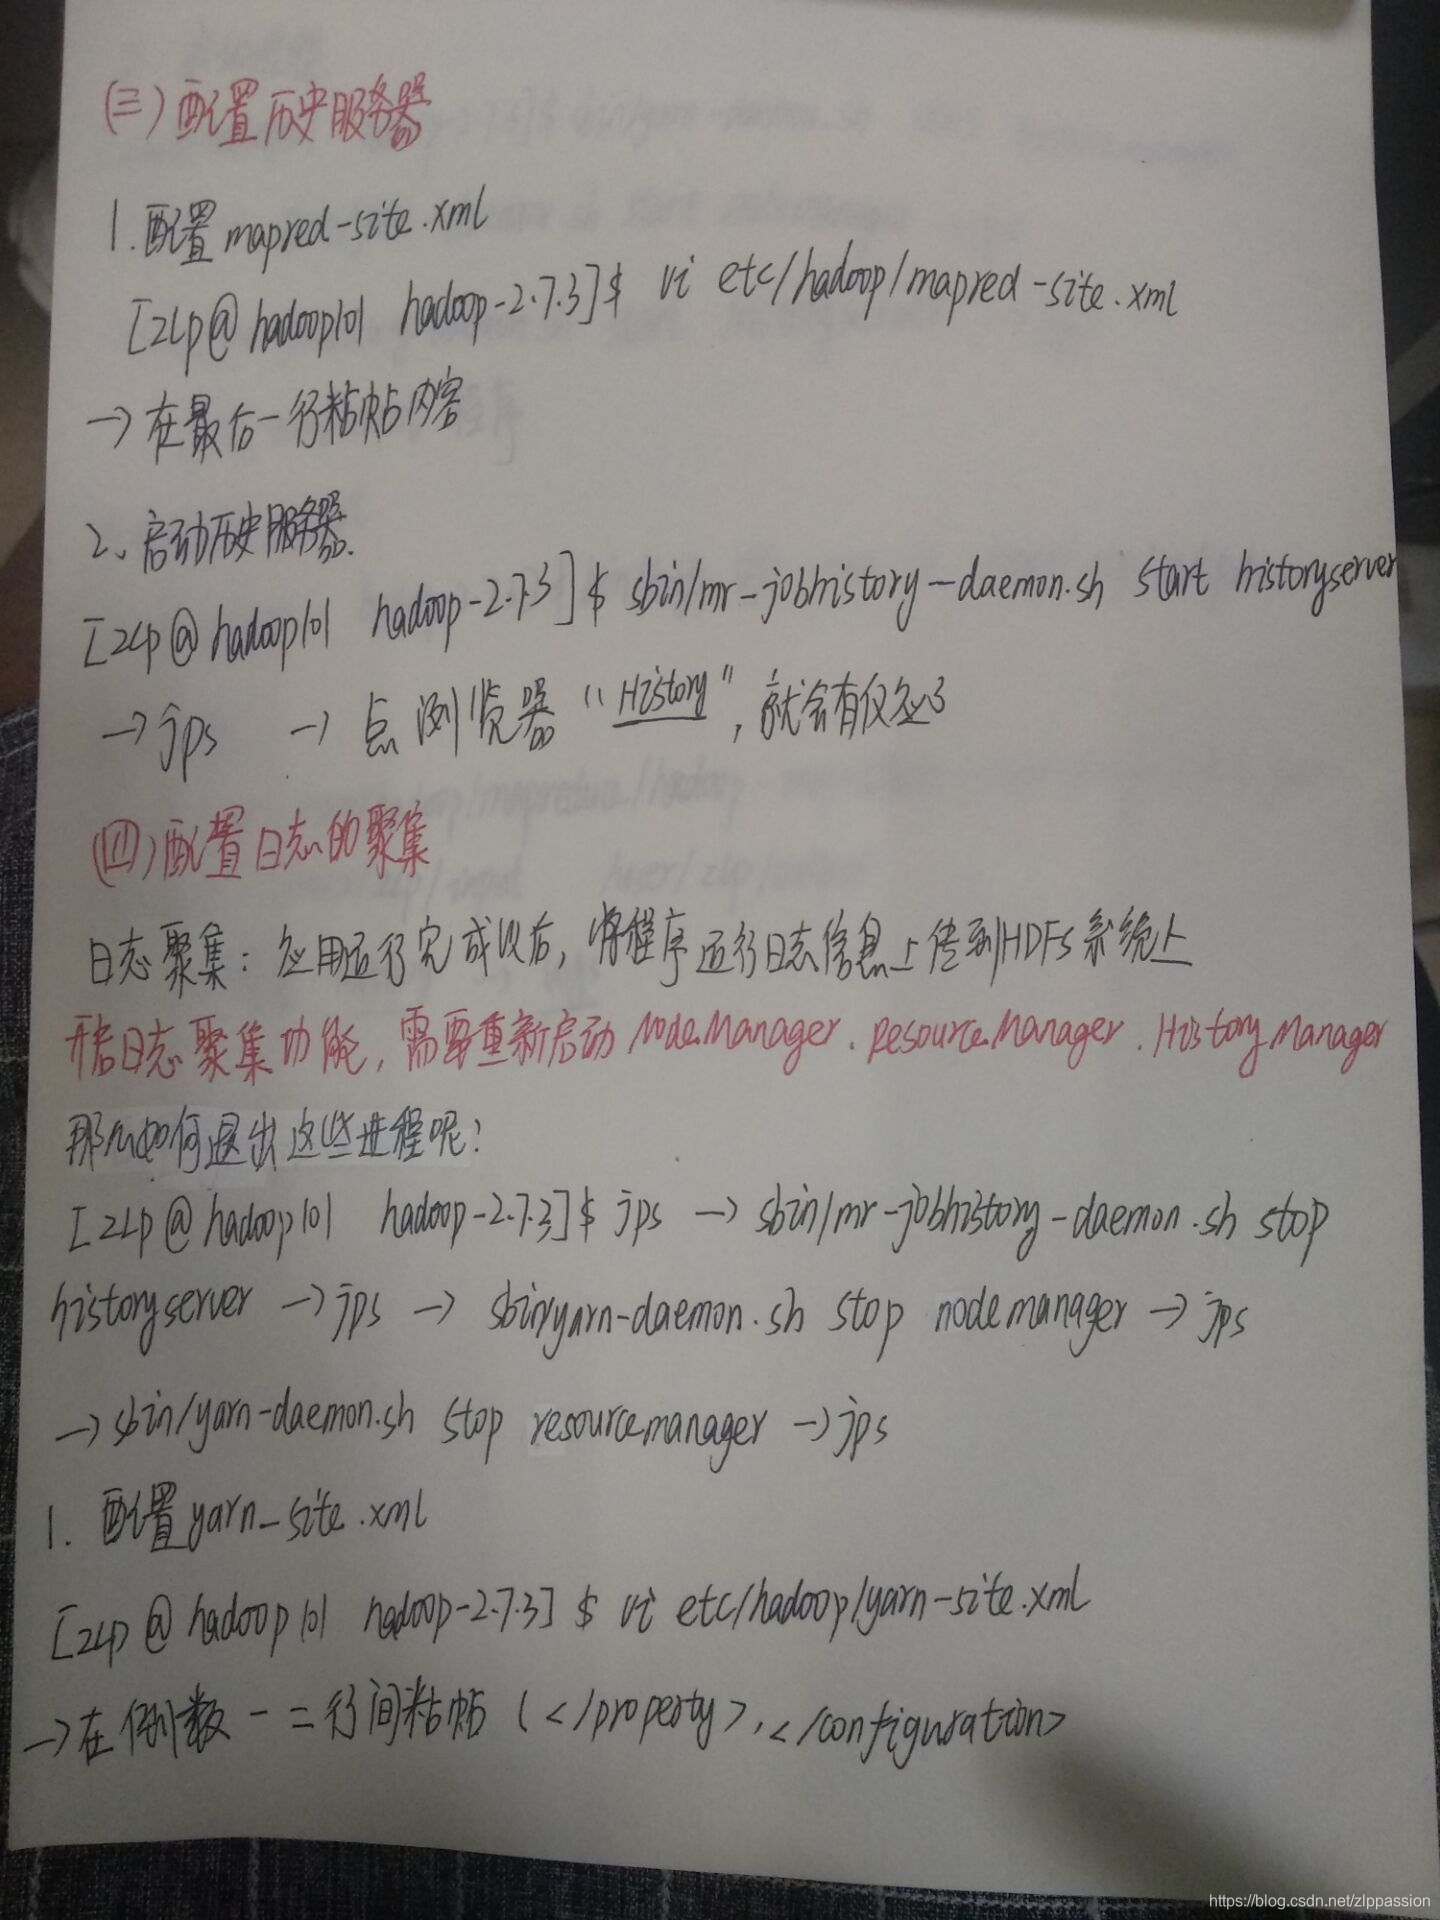 (三)配置历史服务器
1.配置mapred-site.xml
[zlp@hadoop101 hadoop-2.7.3]$ vi etc/hadoop/mapred-site.xml
→在最后一行粘帖内容
2、启动历史服务器.
[zlp@hadoop101 hadoop-2.7.3]$ sbin/mr-jobhistory-daemon.sh start historyserver
→jps → 点浏览器“History”,就会有反应了
(四)配置日志的聚集
日志聚集:应用运行完成以后,将程序运行日志信息上传到HDFS系统上
开启日志聚集功能,需要重新启动NodeManager.ResourceManager.HistoryManager
那么如何退出这些进程呢?
[zlp@hadoop101 hadoop-2.7.3]$ jps → sbin/mr-jobhistory-daemon.sh stop
historyserver →jps → sbin/yarn-daemon.sh stop nodemanager → jps
→ sbin/yarn-daemon.sh stop resourcemanager →jps
1. 配置yarn-site.xml
[zlp@hadoop101 hadoop-2.7.3]$ vi etc/hadoop/yarn-site.xml
→在倒数一二行间粘帖(</property>,</configuration>
https://blog.csdn.net/zlppassion